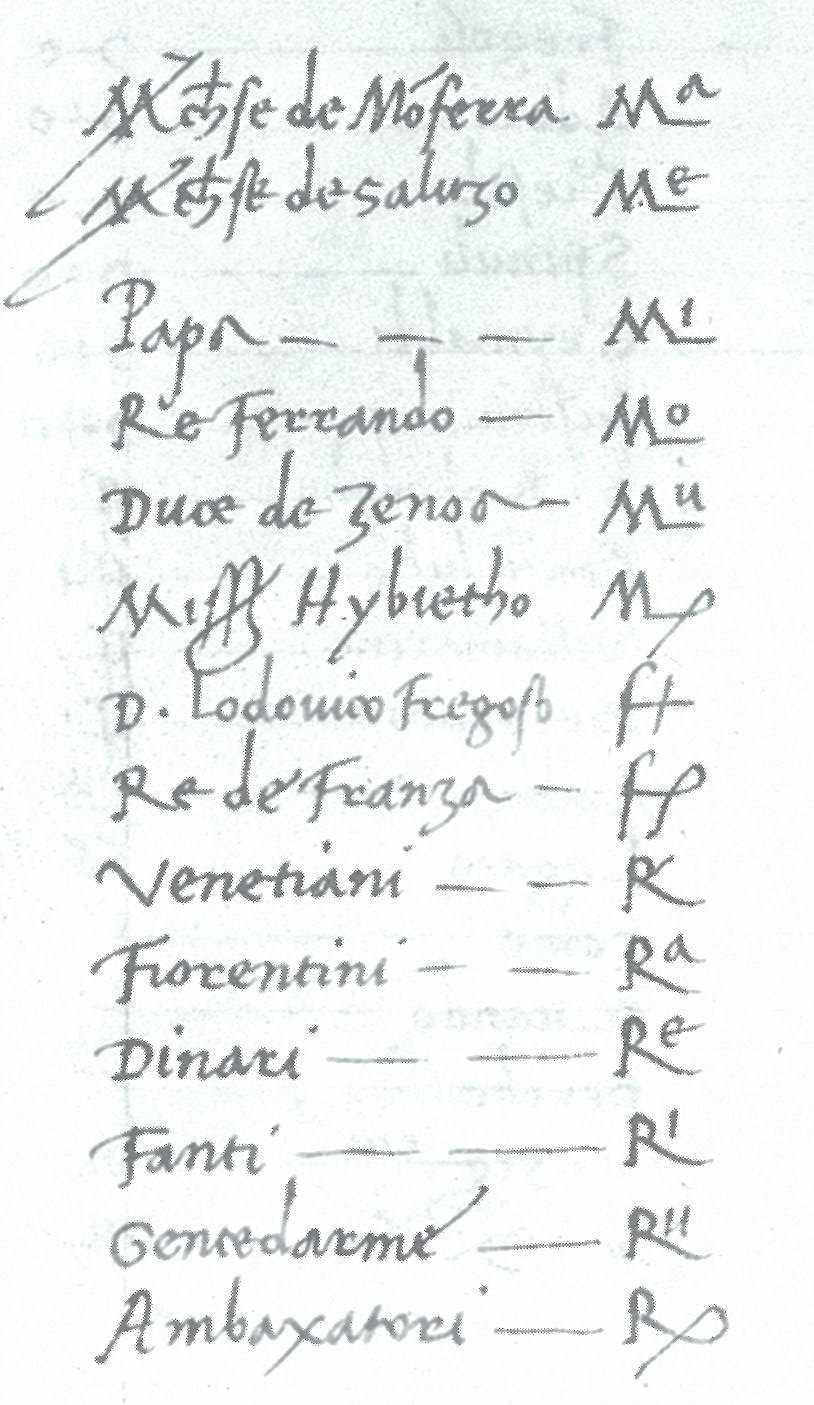 Mchse de Moferra Ma
Mchse de Saluzo Me
Papa — — — Mi
Re Ferrando — Mo
Duce de Zenoa — Mu
Miss Hybietho M
D. Lodouico Fregoso
Re de Franza —
Venetiani — — R
Fiorentini — — Ra
Dinari — — Re
Fanti — — Ri
Gentedarme — Ru
Ambaxatori — R